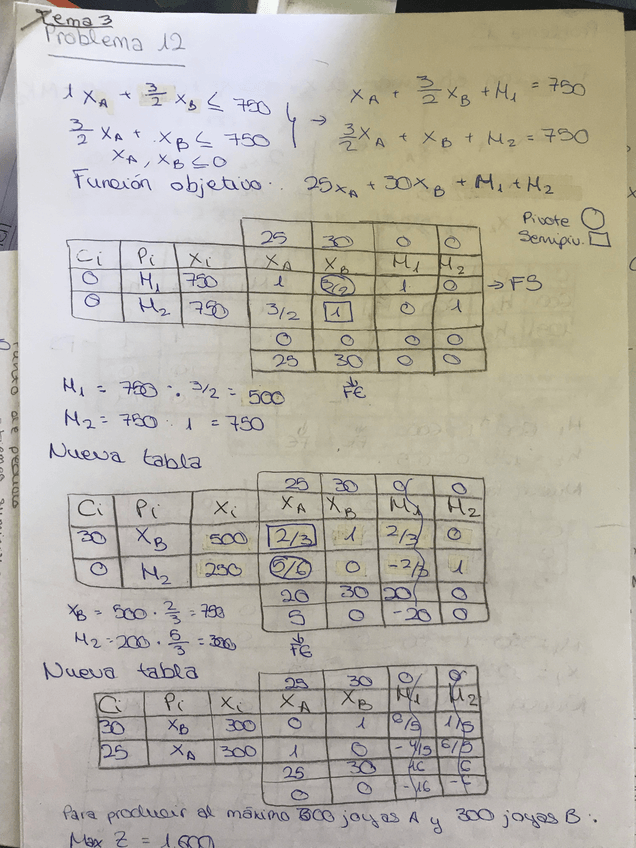 Tema 3
Problema 12
1 XA + 3/2 XB ≤ 750
XA + 3/2 XB + H1 = 750
3/2 XA + XB ≤ 750
3/2 XA + XB + H2 = 750
XA, XB ≤ 0
Función objetivo: 25XA + 30XB + H1 + H2
Pivote
Semipiv.
25 30 0 0
Ci Pi Xi XA XB H1 H2
0 H1 750 1 3/2 1 0 → FS
0 H2 750 3/2 1 0 1
0 0 0 0
25 30 0 0
FE
H1 = 750 : 3/2 = 500
H2 = 750 : 1 = 750
Nueva tabla
25 30 0 0
Ci Pi Xi XA XB H1 H2
30 XB 500 2/3 1 2/3 0
0 H2 250 5/6 0 -2/3 1
20 30 20 0
5 0 -20 0
FE
XB = 500 · 2/3 = 750
H2 = 200 · 5/3 = 300
Nueva tabla
25 30 0 0
Ci Pi Xi XA XB H1 H2
30 XB 300 0 1 6/5 1/5
25 XA 300 1 0 -4/5 6/5
25 30 16 6
0 0 -16 -6
Para producir al máximo 300 joyas A y 300 joyas B.
Max Z = 1.600